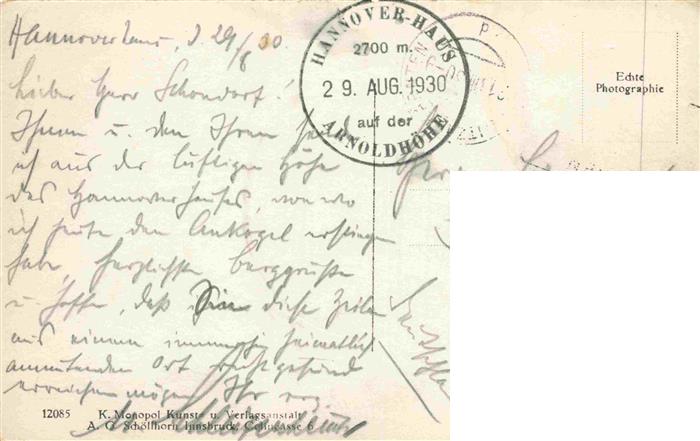 Hannoverhaus, d 29/8 30.
Lieber Herr Schondorf!
Ihnen u. den Ihren sende
ich aus der luftigen Höhe
des Hannoverhauses, von wo
ich heute den Ankogel erstiegen
habe, herzlichste Berggrüße
u. hoffe, daß Sie diese Zeilen
aus einem immerhin heimatlich
anmutenden Ort recht gesund
erreichen mögen Ihr
HANNOVER-HAUS
2700 m.
29. AUG. 1930
auf der
ARNOLDHÖHE
Echte
Photographie
12085 K. Monopol Kunst- u. Verlagsanstalt
A. G. Schöllhorn Innsbruck, Colingasse 6